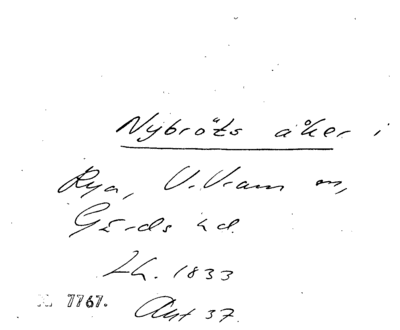 Nybröts åker i
Rya, V. Vram sn,
Gärds hd.
Lh. 1833
7767.
Akt 37.